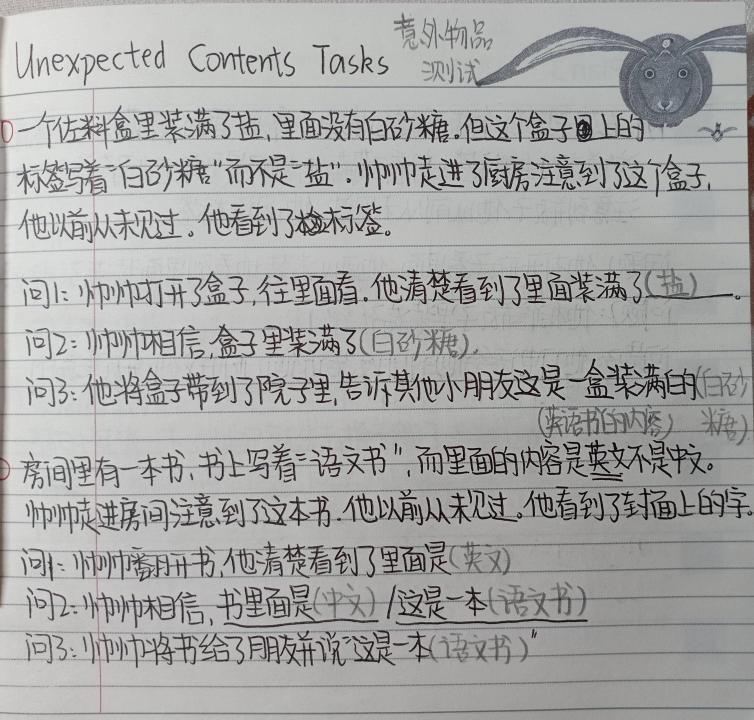 Unexpected Contents Tasks 意外物品
测试
① 一个佐料盒里装满了盐,里面没有白砂糖.但这个盒子上的
标签写着"白砂糖"而不是"盐".帅帅走进了厨房注意到了这个盒子,
他以前从未见过。他看到了标签。
问1:帅帅打开了盒子,往里面看.他清楚看到了里面装满了(盐)。
问2:帅帅相信,盒子里装满了(白砂糖).
问3:他将盒子带到了院子里,告诉其他小朋友这是一盒装满的(白砂
糖)
(英语书的内容)
房间里有一本书,书上写着"语文书",而里面的内容是英文不是中文。
帅帅走进房间注意到了这本书.他以前从未见过。他看到了封面上的字.
问1:帅帅翻开书,他清楚看到了里面是(英文)
问2:帅帅相信,书里面是(中文)/这是一本(语文书)
问3:帅帅将书给了朋友并说"这是一本(语文书)"